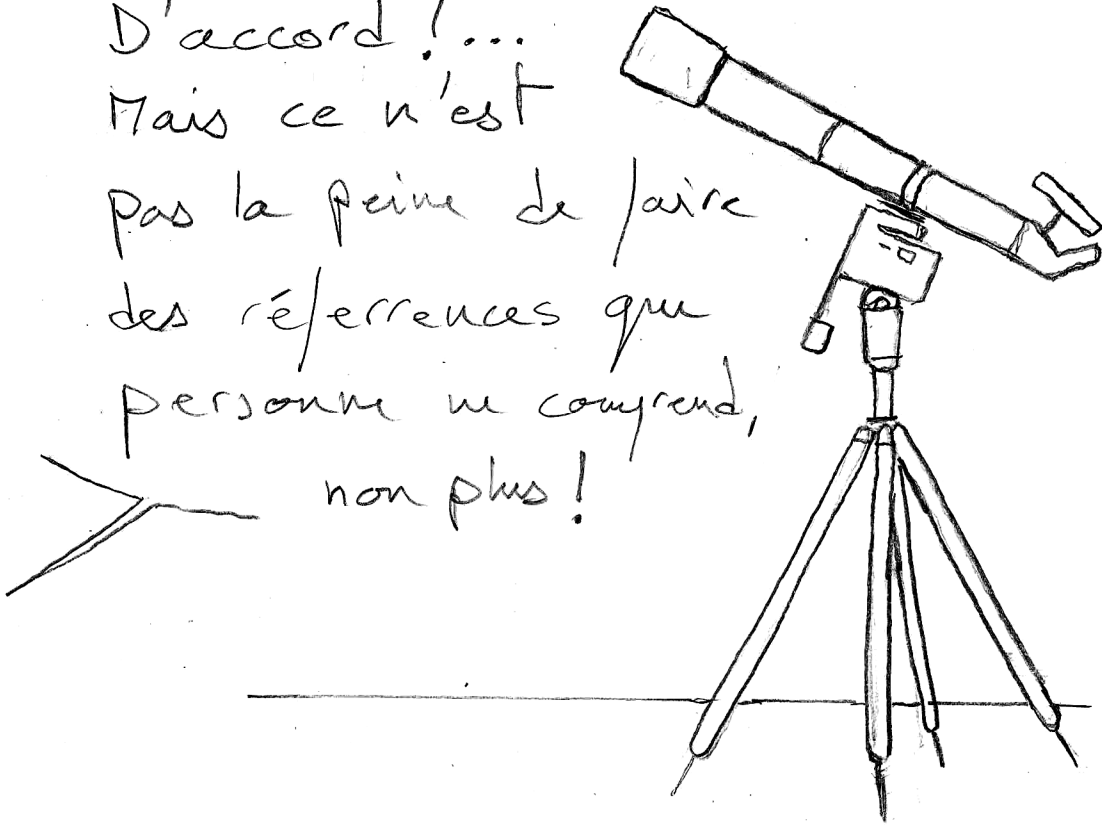 D'accord !...
Mais ce n'est
pas la peine de faire
des réferrences que
personne ne comprend,
non plus !